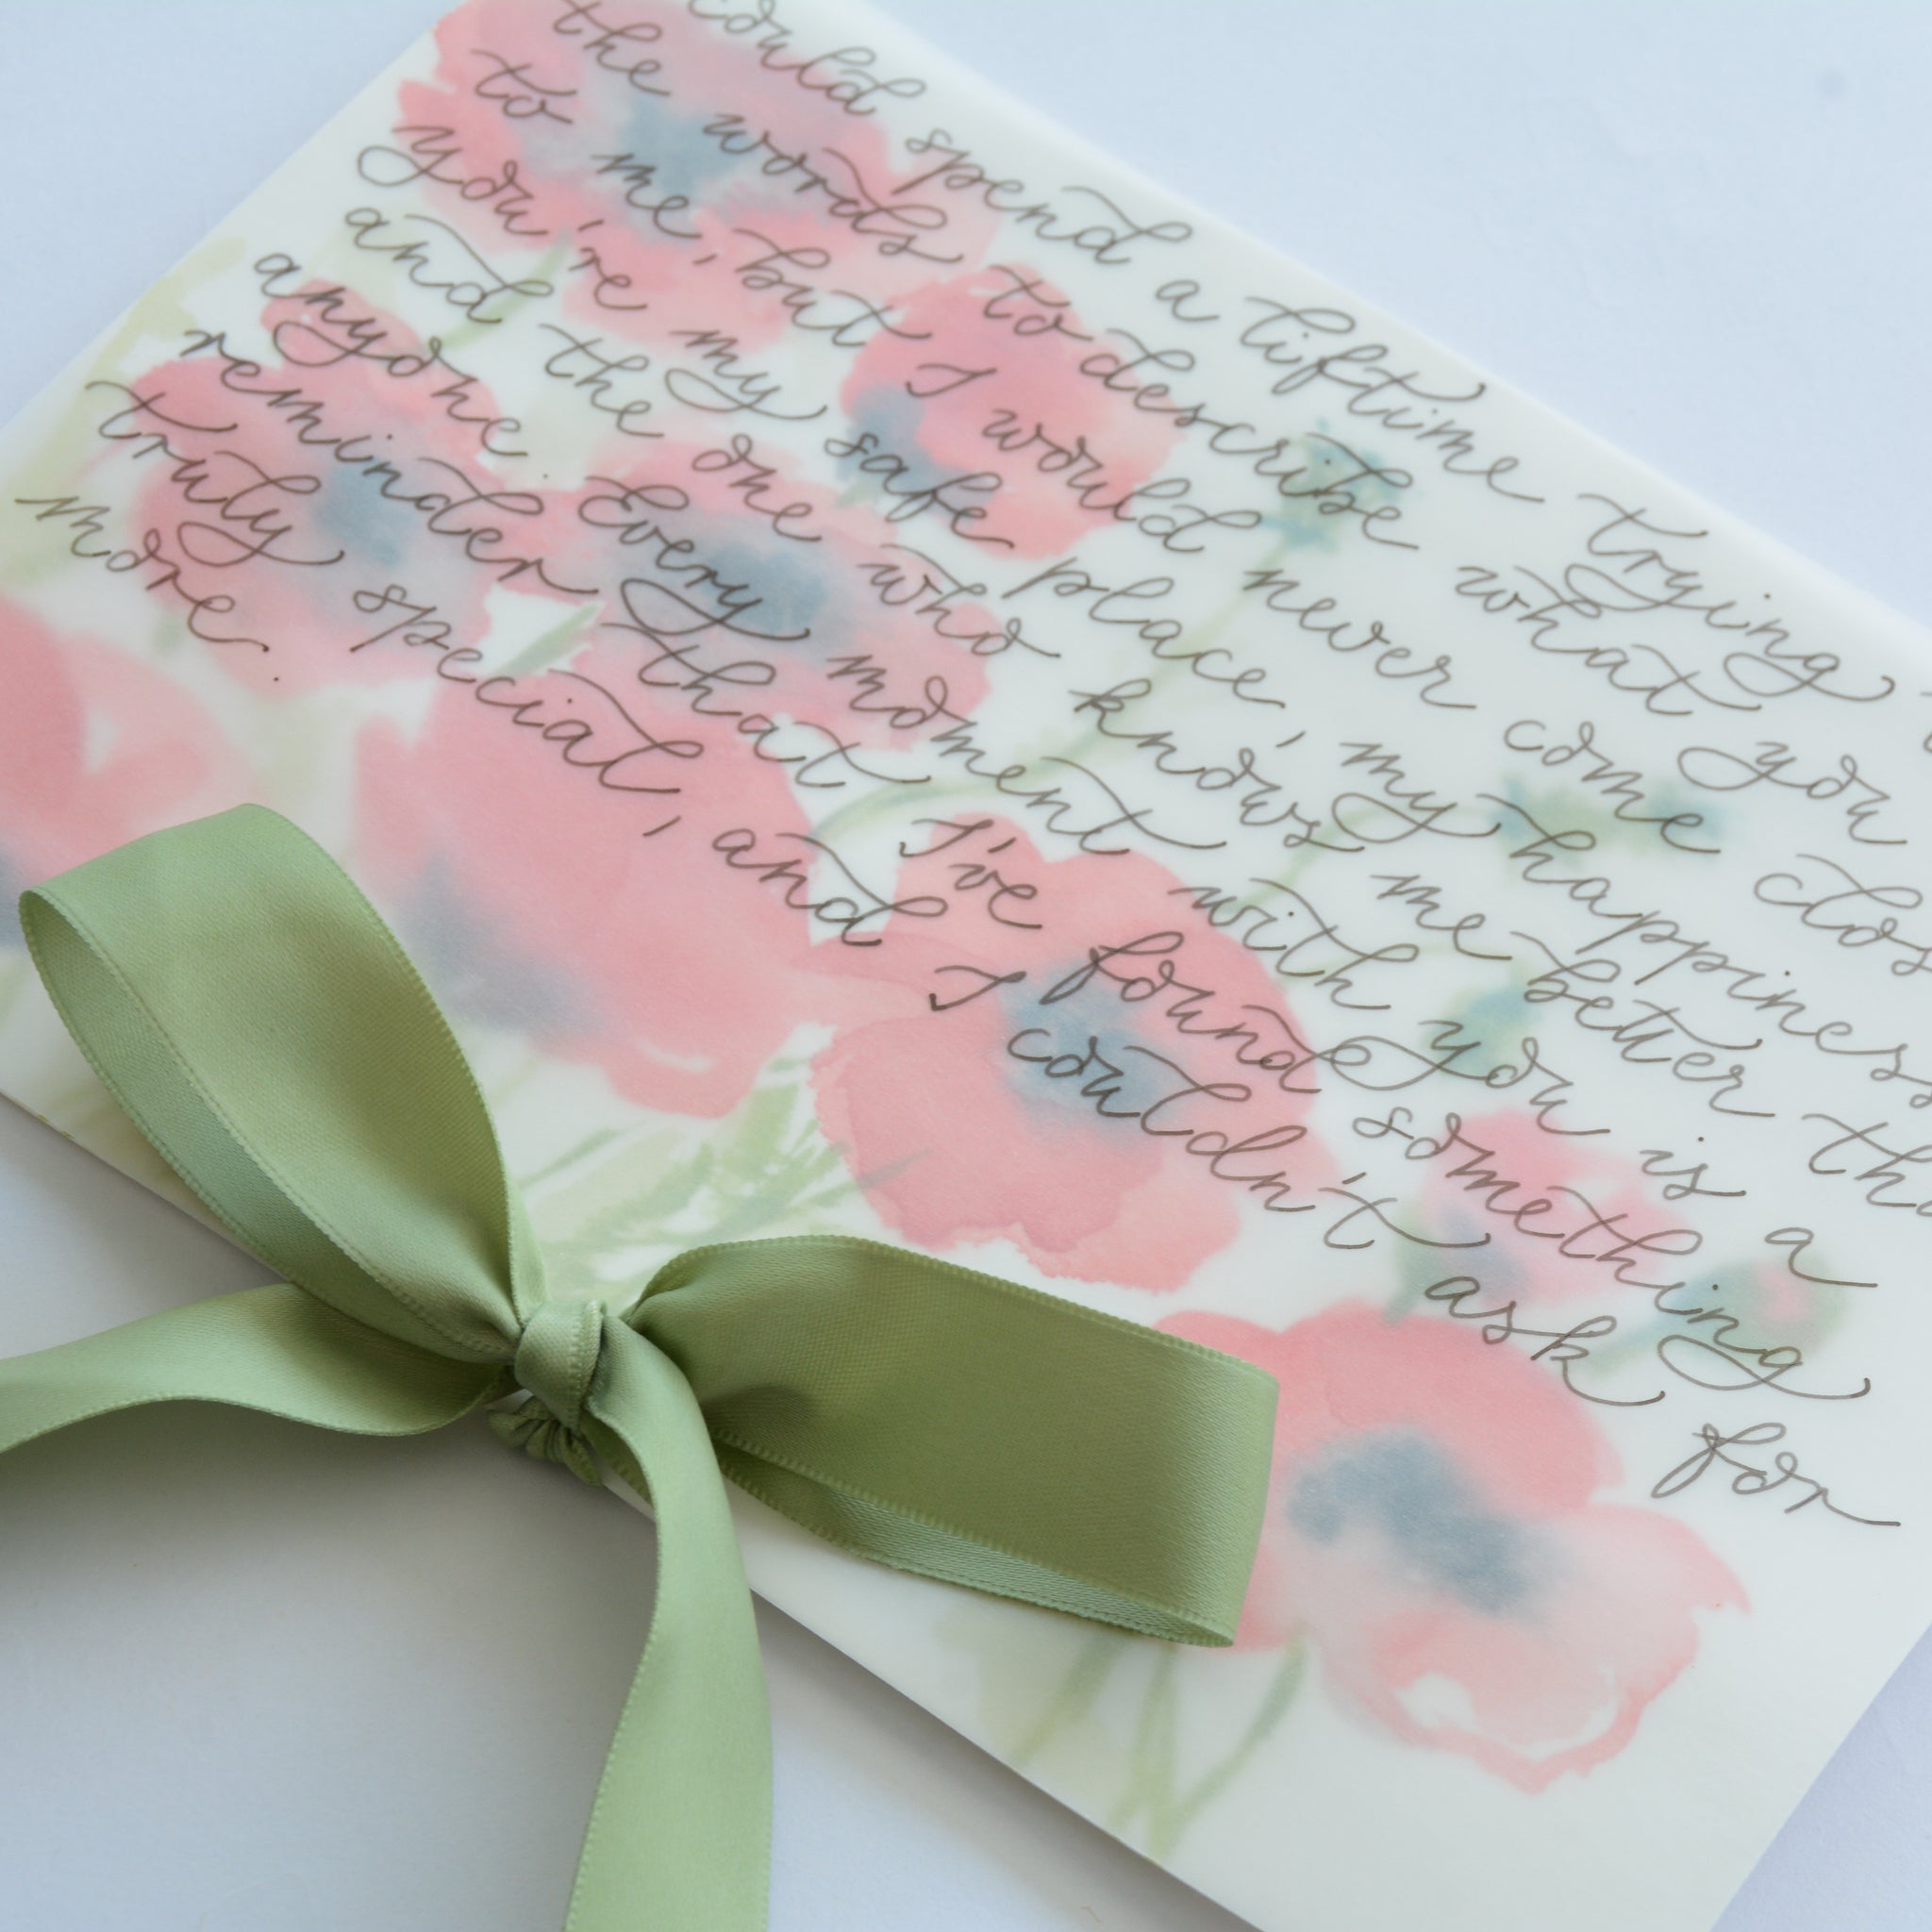 could spend a liftime trying
the words to describe what you
to me, but I would never come clos
you're my safe place, my happiness
and the one who knows me better tha
anyone. Every moment with you is a
reminder that I've found something
truly special, and I couldn't ask for
more.